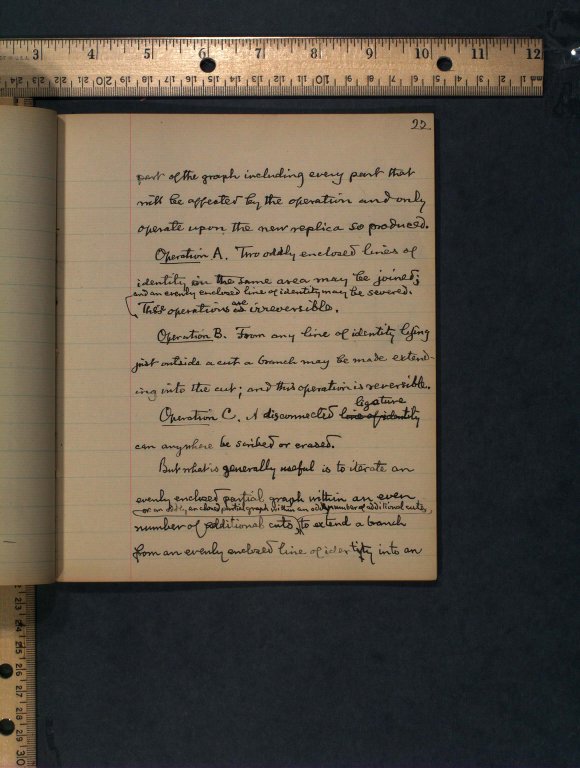 3 4 5 6 7 8 9 10 11 12
22
part of the graph including every part that
will be affected by the operation and only
operate upon the new replica so produced.
Operation A. Two oddly enclosed lines of
identity in the same area may be joined;
and an evenly enclosed line of identity may be severed.
These operations are irreversible.
Operation B. From any line of identity lying
just outside a cut a branch may be made extend-
ing into the cut; and this operation is reversible.
ligature
Operation C. A disconnected line of identity
can anywhere be scribed or erased.
But what is generally useful is to iterate an
evenly enclosed partial graph within an even
or an oddly enclosed partial graph within an odd number of additional cuts,
number of additional cuts, to extend a branch
from an evenly enclosed line of identity into an